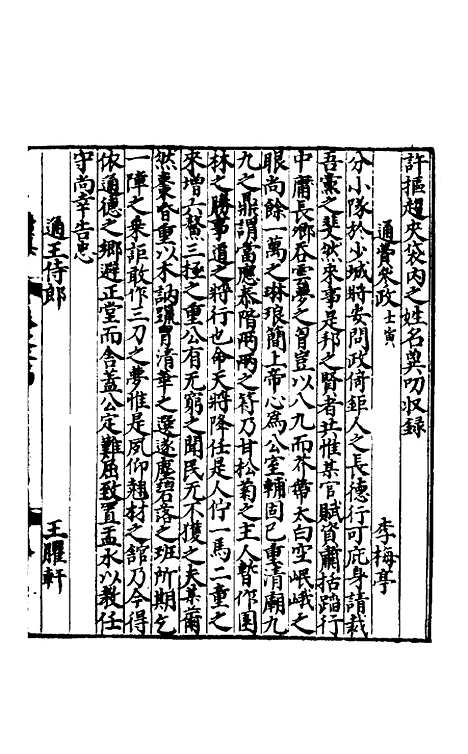 許摳趨夾袋內之姓名冀叨收錄
通費參政 士寅 李梅亭
分小隊於少城將安問政倚鉅人之長德行可庇身請裁
吾黨之斐然來事是邦之賢者共惟某官賦資肅括蹈行
中庸長卿吞雲夢之胷豈以八九而芥蔕太白空岷峨之
眼尚餘一萬之琳琅簡上帝心為公室輔固已重清廟九
九之鼎謂當應泰階兩兩之符乃甘松菊之主人暫作園
林之勝事道之將行也命天將降任是人佇一馬二童之
來增工 三極之重公有无窮之聞民无不獲之夫某蕭
然橐 重以木訥 冑清華之選遂塵碧落之班所期乞
一障之乘詎敢作三刀之夢惟是夙仰翹材之館乃今得
依通德之鄉避正堂而舍蓋公定難屈致置盂水以教任
守尚幸告忠
通王侍郎 王臞軒